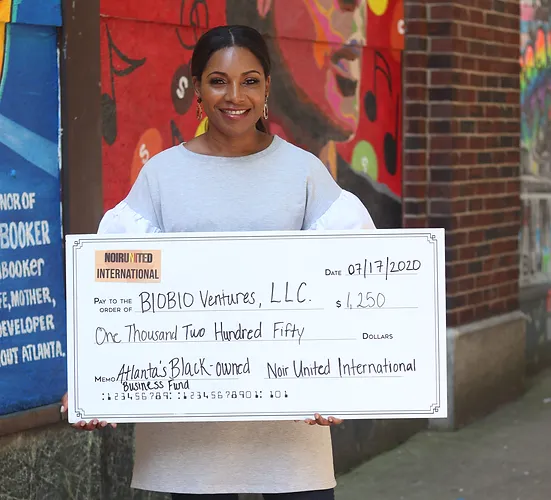 NOR OF
BOOKER
ABOOKER
FE, MOTHER,
DEVELOPER
OUT ATLANTA.
NOIRUNITED
INTERNATIONAL
DATE 07/17/2020
PAY TO THE
ORDER OF BIOBIO Ventures, LLC. $ 1,250
One Thousand Two Hundred Fifty DOLLARS
MEMO Atlanta's Black-owned Noir United International
Business Fund
⑆123456789⑆ ⑆12345678901⑆ 101